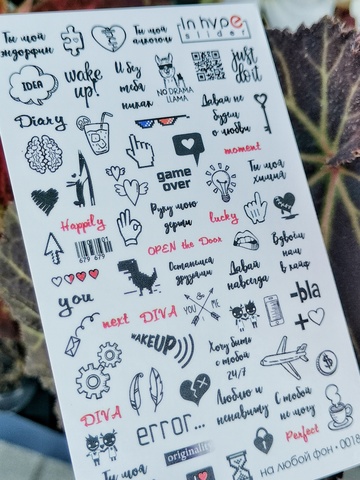 Ты моя
эндорфин
Ты мой
алкоголь
In hype
slider
IDEA
wake
up!
И без
тебя
никак
NO DRAMA
LLAMA
just
do it
Diary
Давай не
будем
о любви
moment
game
over
Ты моя
химия
Happily
Руку мою
держи
lucky
679 679
OPEN the Door
Останемся
друзьями
Давай
навсегда
Вдвоём
нам
в кайф
you
next
DIVA
YOU
ME
-bla
+
wake UP
Хочу быть
с тобой
24/7
$
DIVA
error...
Люблю и
ненавижу
С тобой
не могу
Perfect
original
Ты моя
на любой фон • 0018